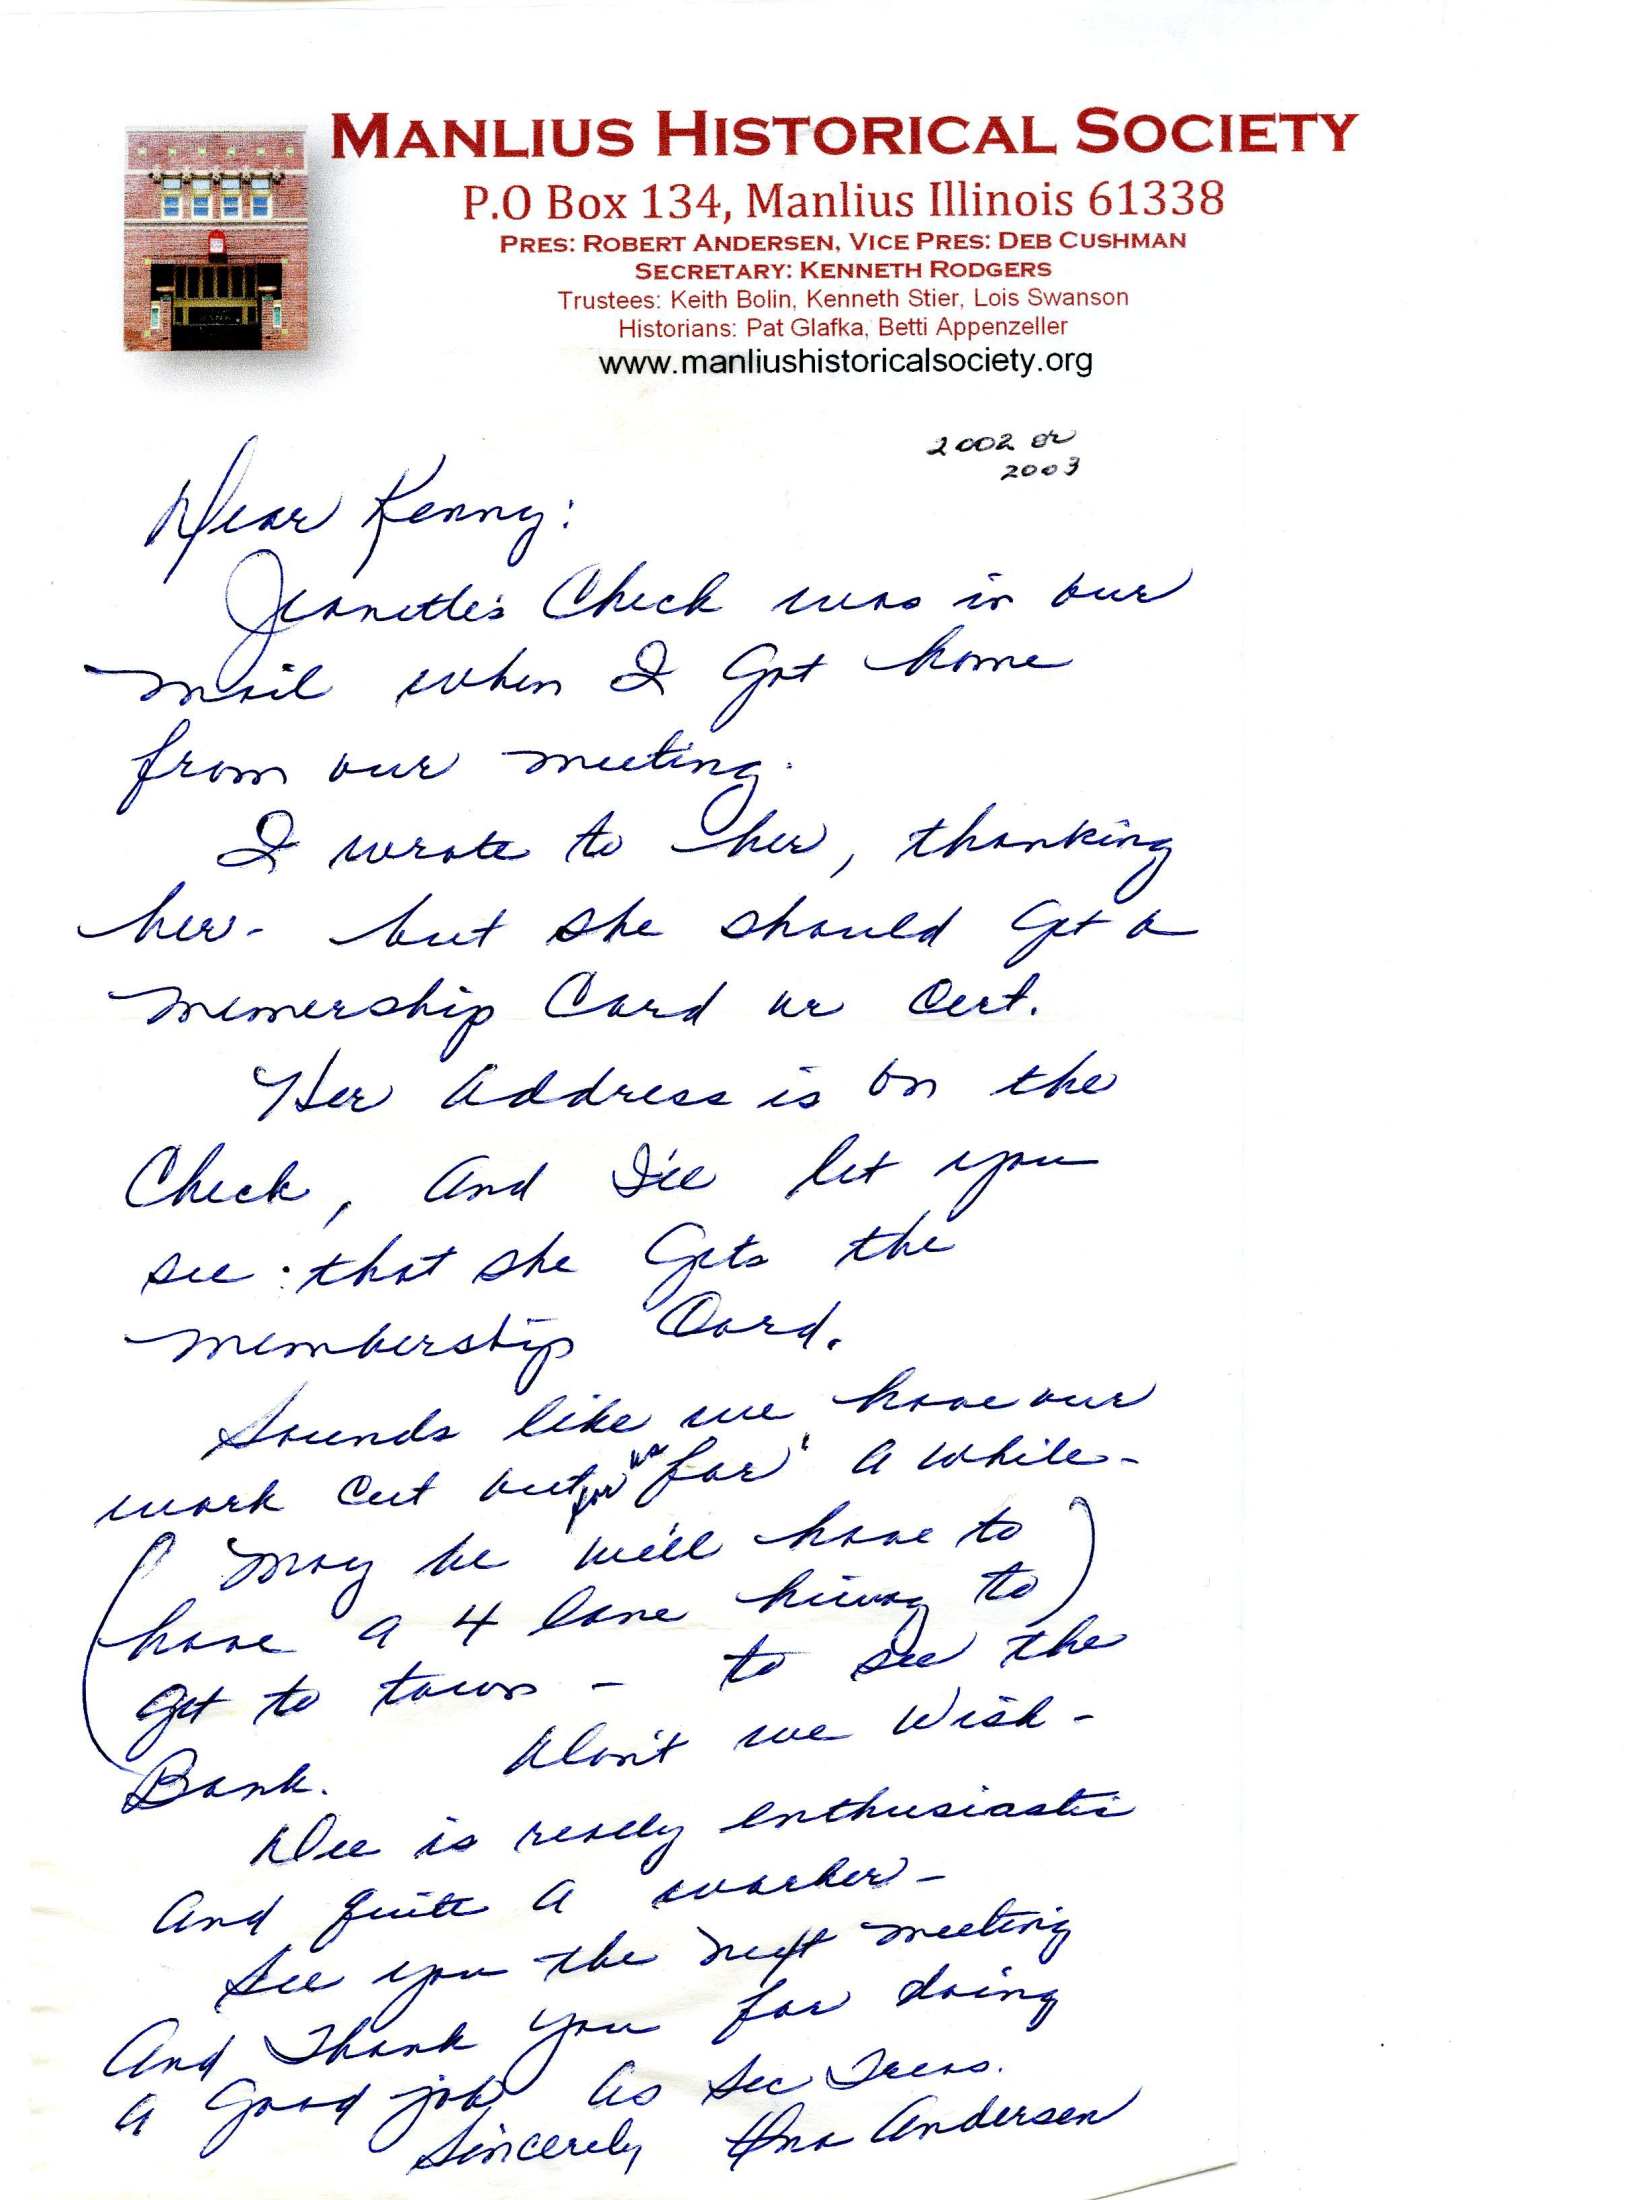 MANLIUS HISTORICAL SOCIETY
P.O Box 134, Manlius Illinois 61338
PRES: ROBERT ANDERSEN, VICE PRES: DEB CUSHMAN
SECRETARY: KENNETH RODGERS
Trustees: Keith Bolin, Kenneth Stier, Lois Swanson
Historians: Pat Glafka, Betti Appenzeller
www.manliushistoricalsociety.org
2002 or
2003
Dear Kenny:
Jeanette's Check was in our
mail when I Got home
from our meeting.
I wrote to her, thanking
her - but she should Get a
memership Card or Cert.
Her address is on the
Check, and I'll let you
see that she Gets the
membership Card.
Sounds like we have our
work cut out for us "for" a while -
(May be we'll have to
have a 4 lane hiway to)
get to town - to see the
Bank. Don't we wish -
Dee is really enthusiastic
and quite a worker -
See you the next meeting
And Thank you for doing
a Good job as Sec Treas.
Sincerely Ina Andersen